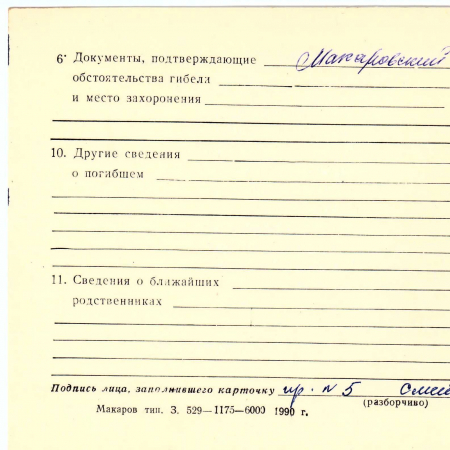 6. Документы, подтверждающие Макаровский
обстоятельства гибели
и место захоронения
10. Другие сведения
о погибшем
11. Сведения о ближайших
родственниках
Подпись лица, заполнившего карточку пр. N 5
(разборчиво)
Макаров тип. З. 529—1175—6000 1990 г.